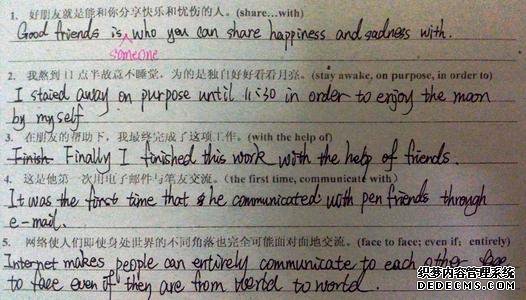 1. 好朋友就是能和你分享快乐和忧伤的人。(share…with)
Good friends is who you can share happiness and sadness with.
someone
2. 我熬到11点半故意不睡觉，为的是独自好好看看月亮。(stay awake, on purpose, in order to)
I staied away on purpose until 11:30 in order to enjoy the moon
by myself
3. 在朋友的帮助下，我最终完成了这项工作。(with the help of)
Finish Finally I finished this work with the help of friends.
4. 这是他第一次用电子邮件与笔友交流。(the first time, communicate with)
It was the first time that he communicated with pen friends through
e-mail.
5. 网络使人们即使身处世界的不同角落也完全可能面对面地交流。(face to face; even if; entirely)
Internet makes people can entirely communicate to each other face
to face even if they are from world to world.